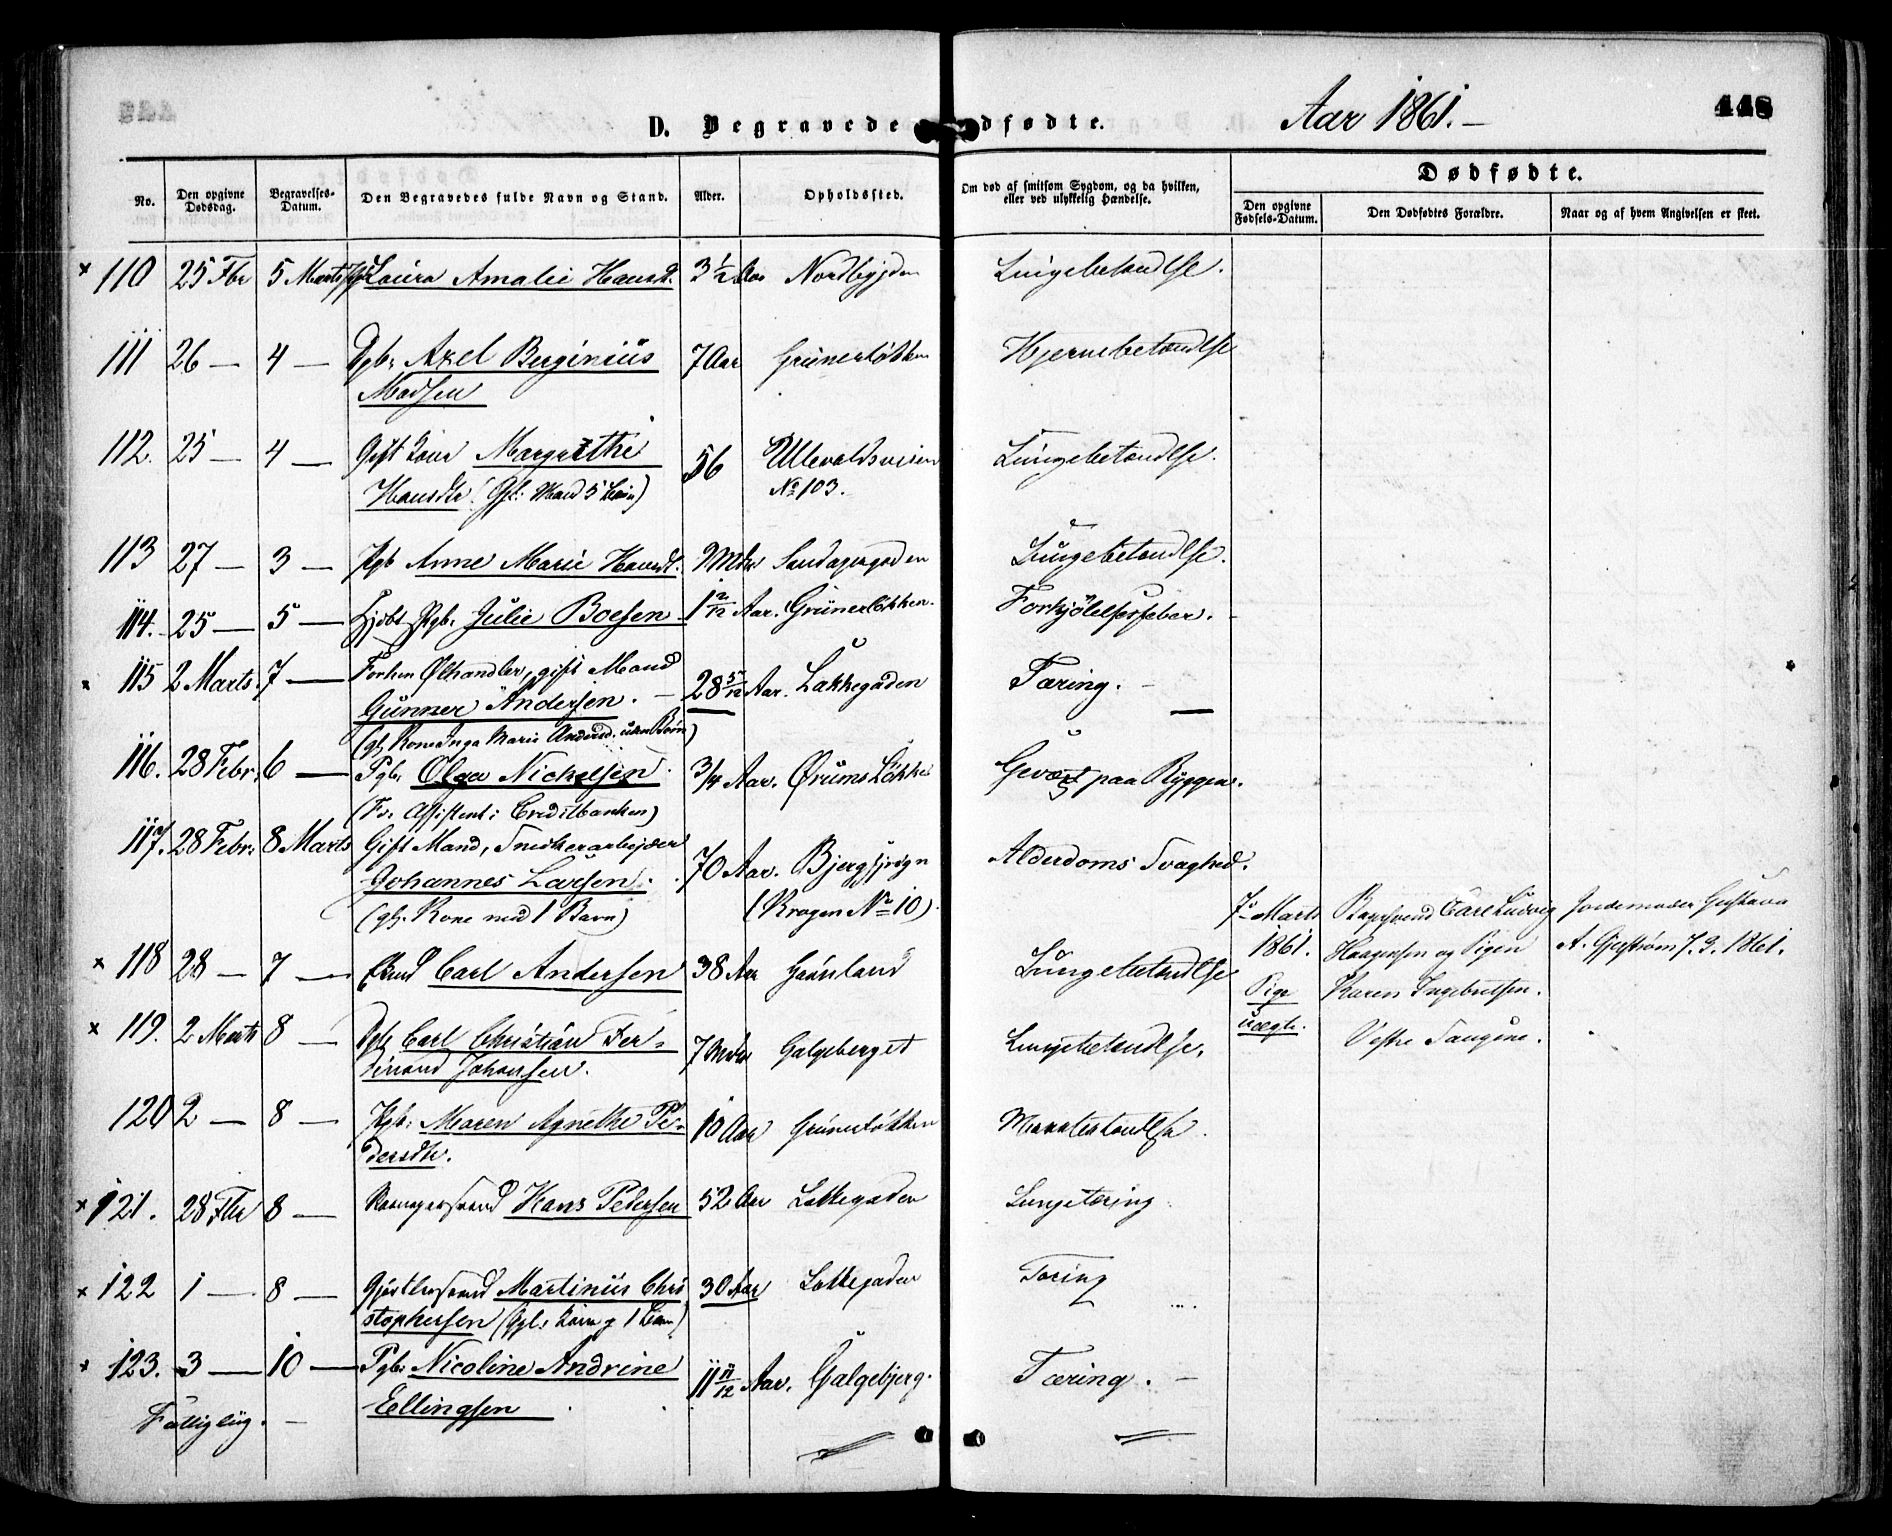 448
D. Begravede
dfødte.
Aar 1861.-
No.
Den opgivne Dødsdag.
Begravelses-Datum.
Den Begravedes fulde Navn og Stand.
Alder.
Opholdssted.
Om død af smitsom Sygdom, og da hvilken, eller ved ulykkelig Hændelse.
Dødfødte.
Den opgivne Fødsels-Datum.
Den Dødfødtes Forældre.
Naar og af hvem Angivelsen er skeet.
× 110 25 Fbr 5 Marts Laura Amalie Hansd. 3 1/2 Aar Nordbygden Lungebetændlse.
111 26 — 4 — Dgb: Axel Berginius 7 Aar Grünerløkken Hjernebetændlse
Madsen
112. 25 — 4 — Gift Kone Margrethe 56 Ullevoldsveien Lungebetændlse.
Hansdtr (Gjl: Mand 5 Børn) No 103.
113 27 — 3 — Pgb Anne Marie Hansdt. Mdr Lungebetændlse.
114. 25 — 5 — Pgb. Julie Boesen 1 2/12 Aar. Grünerløkken. Forkjølelsesfeber.
× 115 2 Marts. 7 — Forhen Ølhandler, gift Mand
Gunner Andersen. — 28 5/12 Aar. Lakkegaden Tæring. —
(gl. Kone Inga Marie Andersd. uden Børn)
116. 28 Febr: 6 — Pgb. Olga Nickelsen. 3/4 Aar. Ørums Løkke Gevæxt paa Ryggen.
(Fr. Assistent i Creditbanken)
117. 28 Febr: 8 Marts Gift Mand, Snedkerarbejder
Johannes Larsen. 70 Aar. Alderdoms Svaghed.
(gl. Kone med 1 Barn) (Krogen No 10).
7 Marts Bagersvend Carl Ludvig Jordemoder Gustava
1861. Haagensen og Pigen A. 7.3.1861.
Pige Karen Ingebretsen.
uægte. Vestre
× 118 28 — 7 — Carl Andersen 38 Aar Grønland Lungebetændlse
× 119. 2 Marts 8 — Dgb Carl Christian Fer-
dinand Johansen. 7 Mdr Galgeberget Lungebetændlse.
120 2 — 8 — Pgb: Maren Agnethe Pe-
dersdtr. 10 Aar Grünerløkken
× 121. 28 Fbr 8 — Hans Pedersen 52 Aar Lakkegaden Lungetæring
× 122 1 — 8 — Martinius Chri 30 Aar Lakkegaden Tæring
stophersen (Gjl: Kone & 1 Barn)
× 123. 3 — 10 — Pgb: Nicoline Andrine
Ellingsen 11 11/12 Aar. Galgebjerg. Tæring. —
Fattiglüg. —